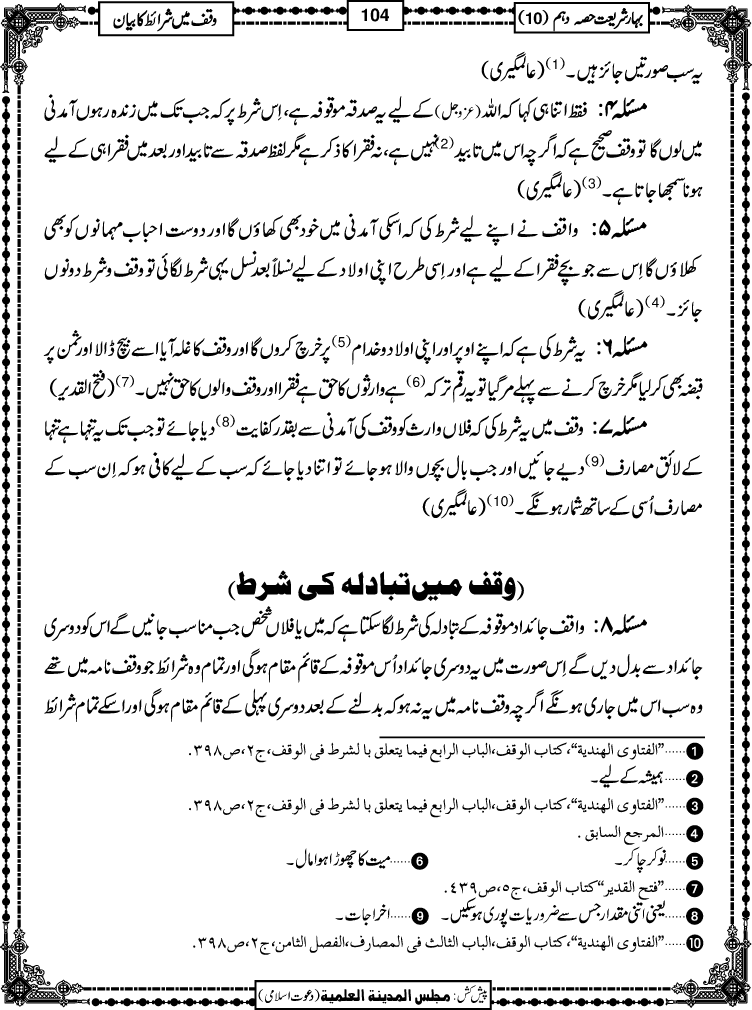 بہارشریعت حصہ دہم (10)
104
وقف میں شرائط کا بیان
یہ سب صورتیں جائز ہیں۔(1) (عالمگیری)
مسئلہ ۴: فقط اتنا ہی کہا کہ اللہ (عزوجل) کے لیے یہ صدقہ موقوفہ ہے، اِس شرط پر کہ جب تک میں زندہ رہوں آمدنی
میں لوں گا تو وقف صحیح ہے کہ اگرچہ اس میں تابید(2) نہیں ہے، نہ فقرا کا ذکر ہے مگر لفظ صدقہ سے تابید اور بعد میں فقرا ہی کے لیے
ہونا سمجھا جاتا ہے۔(3) (عالمگیری)
مسئلہ ۵: واقف نے اپنے لیے شرط کی کہ اسکی آمدنی میں خود بھی کھاؤں گا اور دوست احباب مہمانوں کو بھی
کھلاؤں گا اِس سے جو بچے فقرا کے لیے ہے اور اِسی طرح اپنی اولاد کے لیے نسلاً بعد نسل یہی شرط لگائی تو وقف و شرط دونوں
جائز۔(4) (عالمگیری)
مسئلہ ۶: یہ شرط کی ہے کہ اپنے اوپر اور اپنی اولاد و خدام(5) پر خرچ کروں گا اور وقف کا غلہ آیا اسے بیچ ڈالا اور ثمن پر
قبضہ بھی کر لیا مگر خرچ کرنے سے پہلے مر گیا تو یہ رقم ترکہ(6) ہے وارثوں کا حق ہے فقرا اور وقف والوں کا حق نہیں۔(7) (فتح القدیر)
مسئلہ ۷: وقف میں یہ شرط کی کہ فلاں وارث کو وقف کی آمدنی سے بقدر کفایت(8) دیا جائے تو جب تک یہ تنہا ہے تنہا
کے لائق مصارف(9) دیے جائیں اور جب بال بچوں والا ہو جائے تو اتنا دیا جائے کہ سب کے لیے کافی ہو کہ اِن سب کے
مصارف اُسی کے ساتھ شمار ہونگے۔(10) (عالمگیری)
(وقف میں تبادلہ کی شرط)
مسئلہ ۸: واقف جائداد موقوفہ کے تبادلہ کی شرط لگا سکتا ہے کہ میں یا فلاں شخص جب مناسب جانیں گے اس کو دوسری
جائداد سے بدل دیں گے اِس صورت میں یہ دوسری جائداد اُس موقوفہ کے قائم مقام ہوگی اور تمام وہ شرائط جو وقف نامہ میں تھے
وہ سب اس میں جاری ہونگے اگرچہ وقف نامہ میں یہ نہ ہو کہ بدلنے کے بعد دوسری پہلی کے قائم مقام ہوگی اور اسکے تمام شرائط
1 ......"الفتاوی الهندية"، کتاب الوقف، الباب الرابع فيما يتعلق با لشرط فی الوقف، ج٢، ص٣٩٨.
2 ......ہمیشہ کے لیے۔
3 ......"الفتاوی الهندية"، کتاب الوقف، الباب الرابع فيما يتعلق با لشرط فی الوقف، ج٢، ص٣٩٨.
4 ......المرجع السابق .
5 ......نوکر چاکر۔ 6 ......میت کا چھوڑا ہوا مال۔
7 ......"فتح القدير" کتاب الوقف، ج٥، ص٤٣٩.
8 ......یعنی اتنی مقدار جس سے ضروریات پوری ہوسکیں۔ 9 ......اخراجات۔
10 ......"الفتاوی الهندية"، کتاب الوقف، الباب الثالث فی المصارف، الفصل الثامن، ج٢، ص٣٩٨.
پیش کش: مجلس المدینة العلمیة (دعوت اسلامی)